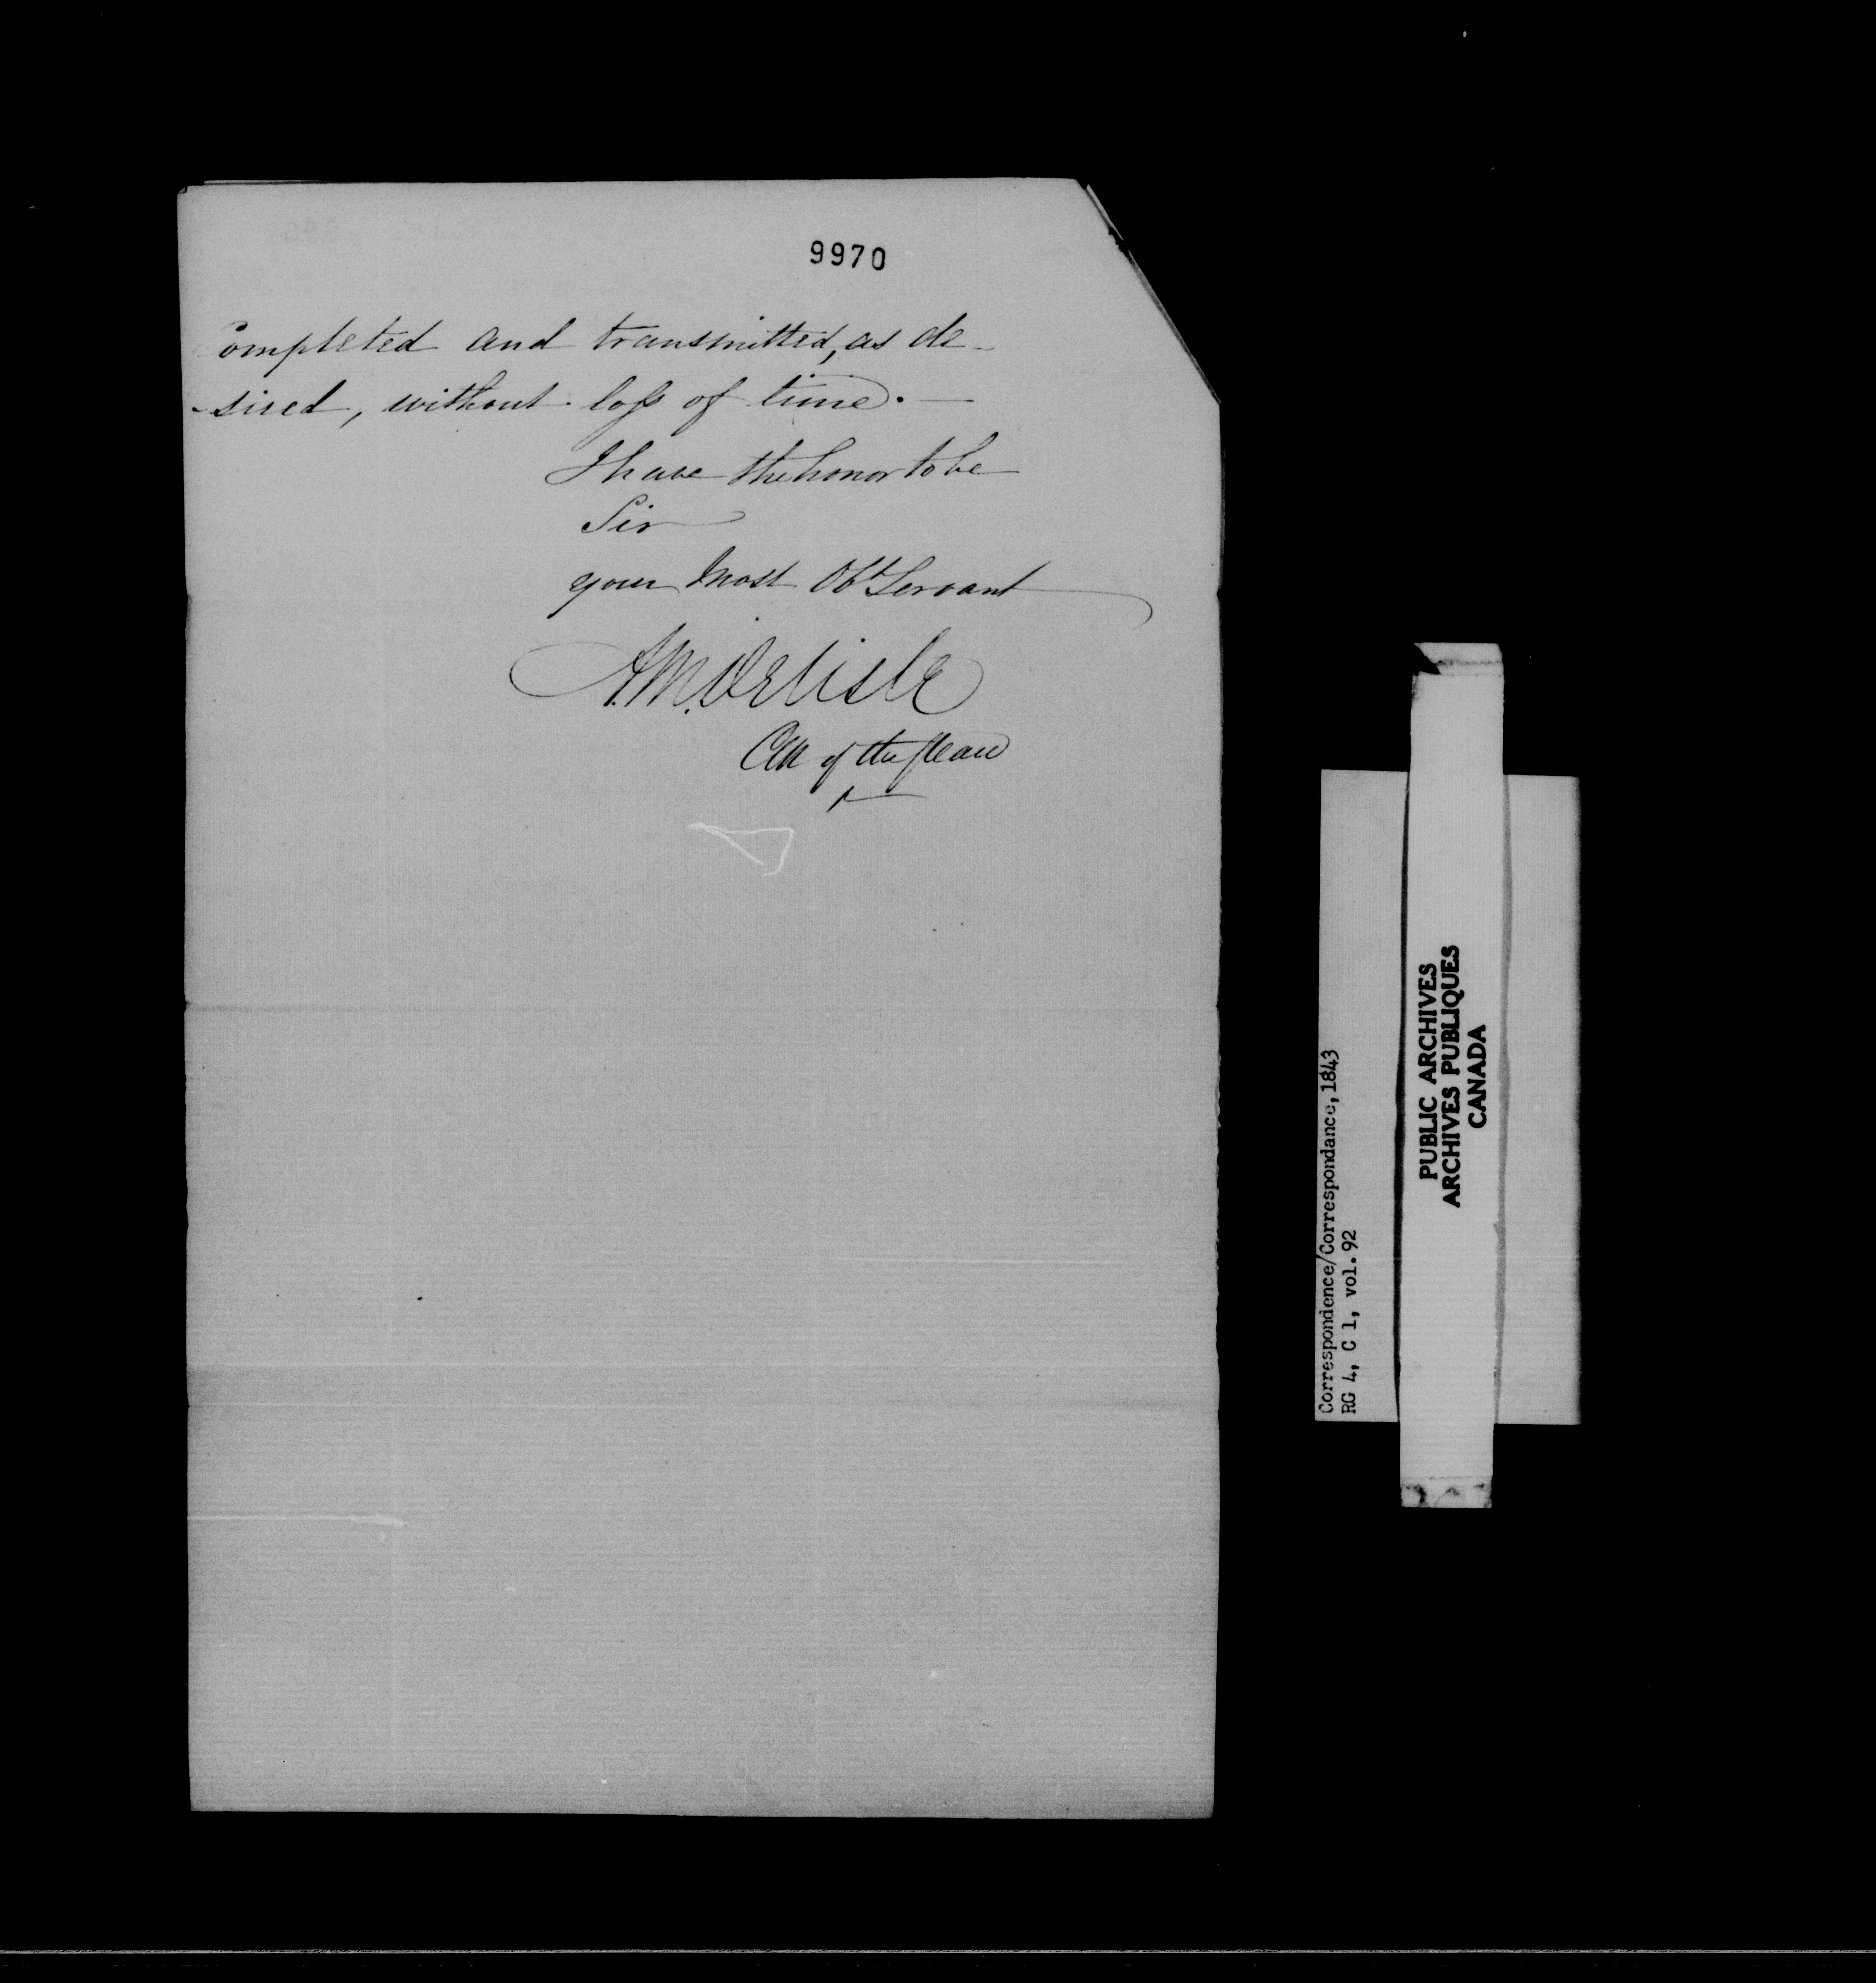 9970
Completed and transmitted, as de-
-sired, without loss of time. —
I have the honor to be
Sir
your Most Obt Servant
A.M. Delisle
Clk of the Peace
Correspondence/Correspondance, 1843
RG 4, C 1, vol. 92
PUBLIC ARCHIVES
ARCHIVES PUBLIQUES
CANADA